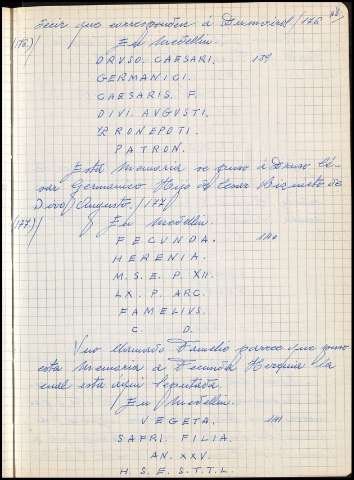 decir que corresponden a Dumviros/176
(176)/ En Medellin.
DRUSO. CAESARI. 139
GERMANICI.
CAESARIS. F.
DIVI. AVGVSTI.
PRONEPOTI.
PATRON.
Esta Memoria se puso a Druso Cé-
sar Germanico Hijo de Cesar Biznieto de
Divo/Augusto/177/
(177)/ En Medellin.
FECUNDA. 140
HERENIA.
M. S. E. P. XII.
LX. P. ARC.
FAMELIUS.
C. D.
Uno llamado Famelio parece que puso
esta Memoria a Fecunda Herenia la
cual esta aqui Sepultada.
/En/Medellin.
VEGETA. 141
SAFRI. FILIA.
AN. XXV.
H. S. E. S. T. T. L.